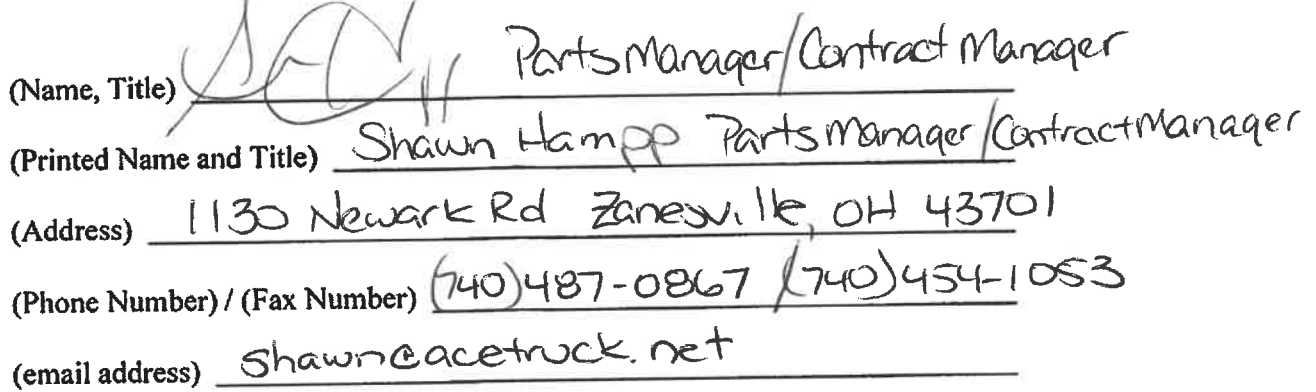 (Name, Title) Parts Manager/Contract Manager
(Printed Name and Title) Shawn Hampp Parts Manager/Contract Manager
(Address) 1130 Newark Rd Zanesville, OH 43701
(Phone Number) / (Fax Number) (740)487-0867 /(740)454-1053
(email address) shawn@acetruck.net